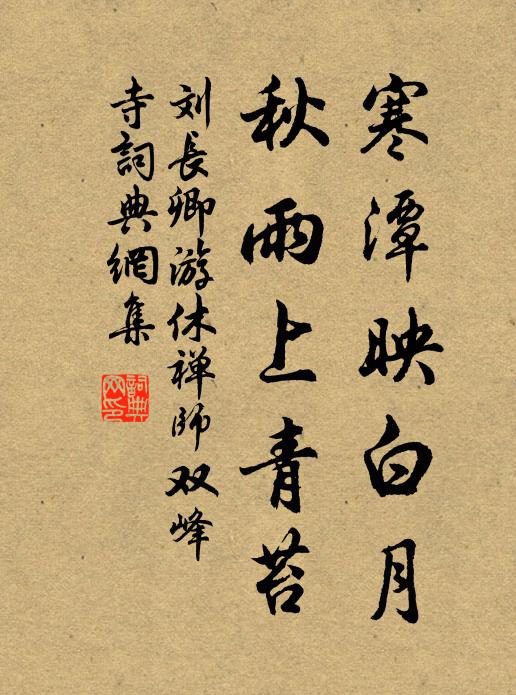 寒潭映白月
秋雨上青苔
刘長卿游休禅師双峰
寺詞典網集
詞典網印